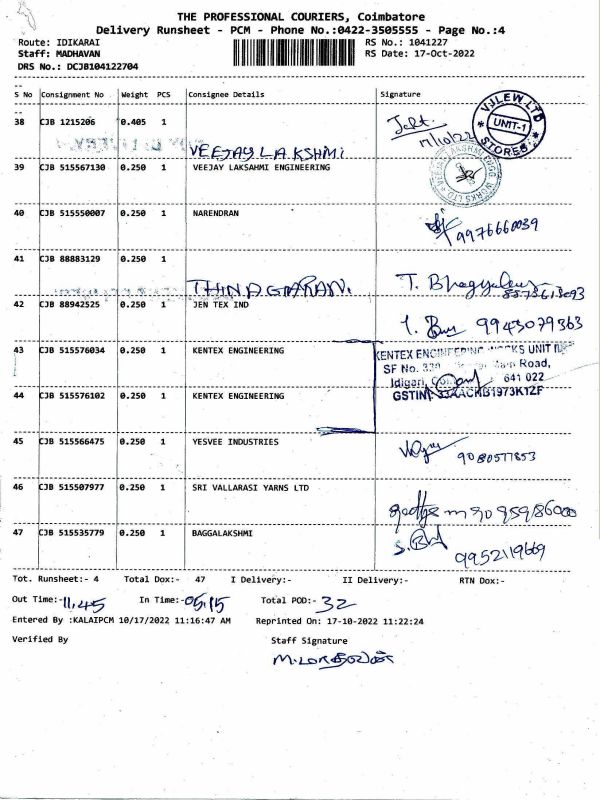 THE PROFESSIONAL COURIERS, Coimbatore
Delivery Runsheet - PCM - Phone No.:0422-3505555 - Page No.:4
Route: IDIKARAI RS No.: 1041227
Staff: MADHAVAN RS Date: 17-Oct-2022
DRS No.: DCJB104122704
S No Consignment No Weight PCS Consignee Details Signature
38 CJB 1215206 0.405 1
17/10/22
VJLEW LTD
* UNIT-1 *
STORES
VEEJAY LAKSHMI
39 CJB 515567130 0.250 1 VEEJAY LAKSAHMI ENGINEERING
40 CJB 515550007 0.250 1 NARENDRAN
9976660039
41 CJB 88883129 0.250 1
THINAGARAN.
T.
42 CJB 88942525 0.250 1 JEN TEX IND
9943079363
43 CJB 515576034 0.250 1 KENTEX ENGINEERING
KENTEX ENGINEERING WORKS UNIT
SF No. Main Road,
Idigarai, 641 022
44 CJB 515576102 0.250 1 KENTEX ENGINEERING
GSTIN
45 CJB 515566475 0.250 1 YESVEE INDUSTRIES
9080577853
46 CJB 515507977 0.250 1 SRI VALLARASI YARNS LTD
47 CJB 515535779 0.250 1 BAGGALAKSHMI
9952119669
Tot. Runsheet:- 4 Total Dox:- 47 I Delivery:- II Delivery:- RTN Dox:-
Out Time:- 11.45 In Time:- 05.15 Total POD:- 32
Entered By :KALAIPCM 10/17/2022 11:16:47 AM Reprinted On: 17-10-2022 11:22:24
Verified By Staff Signature
M.மாதவன்